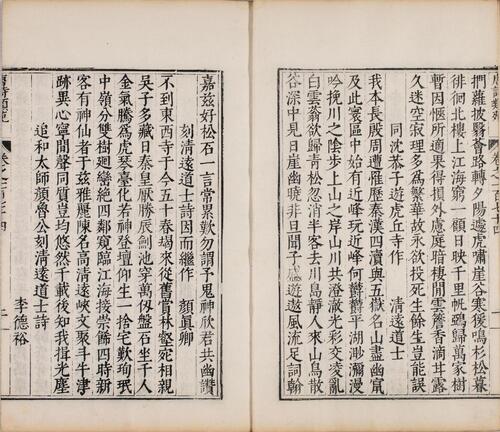 捫羅披翳薈路轉夕陽遽虎嘯崖谷寒猿鳴杉松暮
徘徊北樓上江海窮一顧日映千里帆鴉歸萬家樹
暫因愜所適果得損外慮庭暗棲閒雲簷香滴甘露
久迷空寂理多爲繁華故永欲投死生餘生豈能誤
同沈恭子遊虎丘寺作 清遠道士
我本長殷周遭罹歷秦漢四瀆與五嶽名山盡幽竄
及此寰區中始有近峰玩近峰何鬱鬱平湖渺瀰漫
吟挽川之陰步上山之岸山川共澄澈光彩交凌亂
白雲蓊欲歸青松忽消半客去川島靜人來山鳥散
谷深中見日崖幽曉非旦聞子盛遊遨風流足詞翰
嘉兹好松石一言常累歎勿謂予鬼神欣君共幽讚
刻清遠道士詩因而繼作 顏眞卿
不到東西寺于今五十春朅來從舊賞林壑宛相親
吳子多藏日秦皇厭勝辰劍池穿萬仞盤石坐千人
金氣騰爲虎琴臺化若神登壇仰生一捨宅歎珣珉
中嶺分雙樹迴巒絶四鄰窺臨江海接崇飾四時新
客有神仙者于兹雅麗陳名高清遠峽文聚斗牛津
跡異心寧間聲同質豈均悠然千載後知我揖光塵
追和太師顏魯公刻清遠道士詩
李德裕